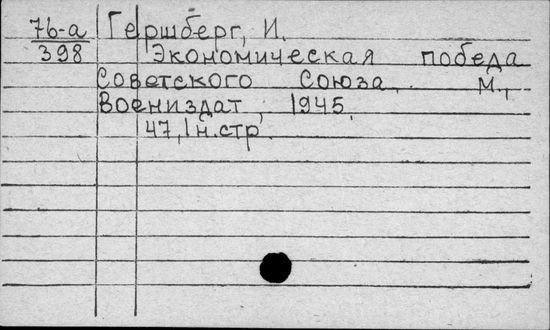 76-а Гершберг, И.
398 Экономическая победа
Советского Союза. М.,
Воениздат, 1945.
47, 1 н. стр.